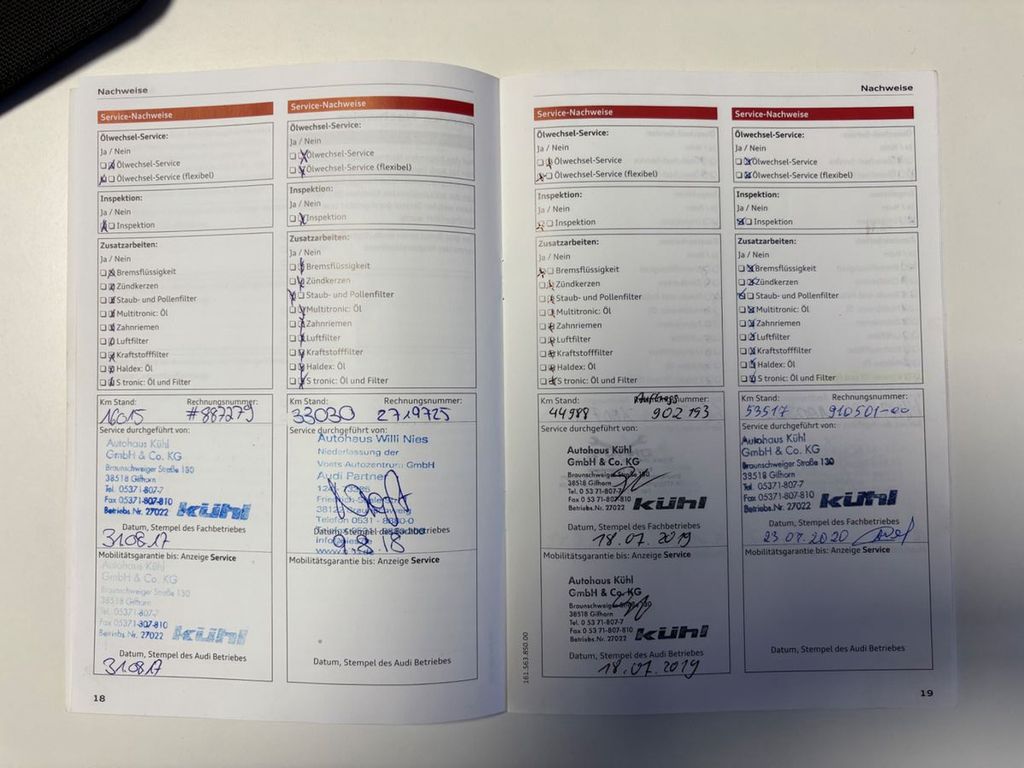 Nachweise
Service-Nachweise
Ölwechsel-Service:
Ja / Nein
Ölwechsel-Service
Ölwechsel-Service (flexibel)
Inspektion:
Ja / Nein
Inspektion
Zusatzarbeiten:
Ja / Nein
Bremsflüssigkeit
Zündkerzen
Staub- und Pollenfilter
Multitronic: Öl
Zahnriemen
Luftfilter
Kraftstofffilter
Haldex: Öl
S tronic: Öl und Filter
Km Stand: Rechnungsnummer:
16015 #887279
Service durchgeführt von:
Autohaus Kühl
GmbH & Co. KG
Braunschweiger Straße 130
38518 Gifhorn
Tel. 05371-807-7
Fax 05371-807-810
Betriebs.Nr. 27022 kühl
Datum, Stempel des Fachbetriebes
310817
Mobilitätsgarantie bis: Anzeige Service
Autohaus Kühl
GmbH & Co. KG
Braunschweiger Straße 130
38518 Gifhorn
Tel. 05371-807-7
Fax 05371-807-810
Betriebs.Nr. 27022 kühl
Datum, Stempel des Audi Betriebes
310817
18
Service-Nachweise
Ölwechsel-Service:
Ja / Nein
Ölwechsel-Service
Ölwechsel-Service (flexibel)
Inspektion:
Ja / Nein
Inspektion
Zusatzarbeiten:
Ja / Nein
Bremsflüssigkeit
Zündkerzen
Staub- und Pollenfilter
Multitronic: Öl
Zahnriemen
Luftfilter
Kraftstofffilter
Haldex: Öl
S tronic: Öl und Filter
Km Stand: Rechnungsnummer:
33030 2719725
Service durchgeführt von:
Autohaus Willi Nies
Niederlassung der
Voets Autozentrum GmbH
Audi Partner
Datum, Stempel des Fachbetriebes
9.8.18
Mobilitätsgarantie bis: Anzeige Service
Datum, Stempel des Audi Betriebes
Nachweise
Service-Nachweise
Ölwechsel-Service:
Ja / Nein
Ölwechsel-Service
Ölwechsel-Service (flexibel)
Inspektion:
Ja / Nein
Inspektion
Zusatzarbeiten:
Ja / Nein
Bremsflüssigkeit
Zündkerzen
Staub- und Pollenfilter
Multitronic: Öl
Zahnriemen
Luftfilter
Kraftstofffilter
Haldex: Öl
S tronic: Öl und Filter
Km Stand:
44988 902193
Service durchgeführt von:
Autohaus Kühl
GmbH & Co. KG
Braunschweiger Straße 130
38518 Gifhorn
Tel. 0 53 71-807-7
Fax 0 53 71-807-810
Betriebs.Nr. 27022 kühl
Datum, Stempel des Fachbetriebes
18.07.2019
Mobilitätsgarantie bis: Anzeige Service
Autohaus Kühl
GmbH & Co. KG
Braunschweiger Straße 130
38518 Gifhorn
Tel. 0 53 71-807-7
Fax 0 53 71-807-810
Betriebs.Nr. 27022 kühl
Datum, Stempel des Audi Betriebes
18.07.2019
161.563.850.00
Service-Nachweise
Ölwechsel-Service:
Ja / Nein
Ölwechsel-Service
Ölwechsel-Service (flexibel)
Inspektion:
Ja / Nein
Inspektion
Zusatzarbeiten:
Ja / Nein
Bremsflüssigkeit
Zündkerzen
Staub- und Pollenfilter
Multitronic: Öl
Zahnriemen
Luftfilter
Kraftstofffilter
Haldex: Öl
S tronic: Öl und Filter
Km Stand: Rechnungsnummer:
53517 910501-00
Service durchgeführt von:
Autohaus Kühl
GmbH & Co. KG
Braunschweiger Straße 130
38518 Gifhorn
Tel. 05371-807-7
Fax 05371-807-810
Betriebs.Nr. 27022 kühl
Datum, Stempel des Fachbetriebes
23.07.2020
Mobilitätsgarantie bis: Anzeige Service
Datum, Stempel des Audi Betriebes
19